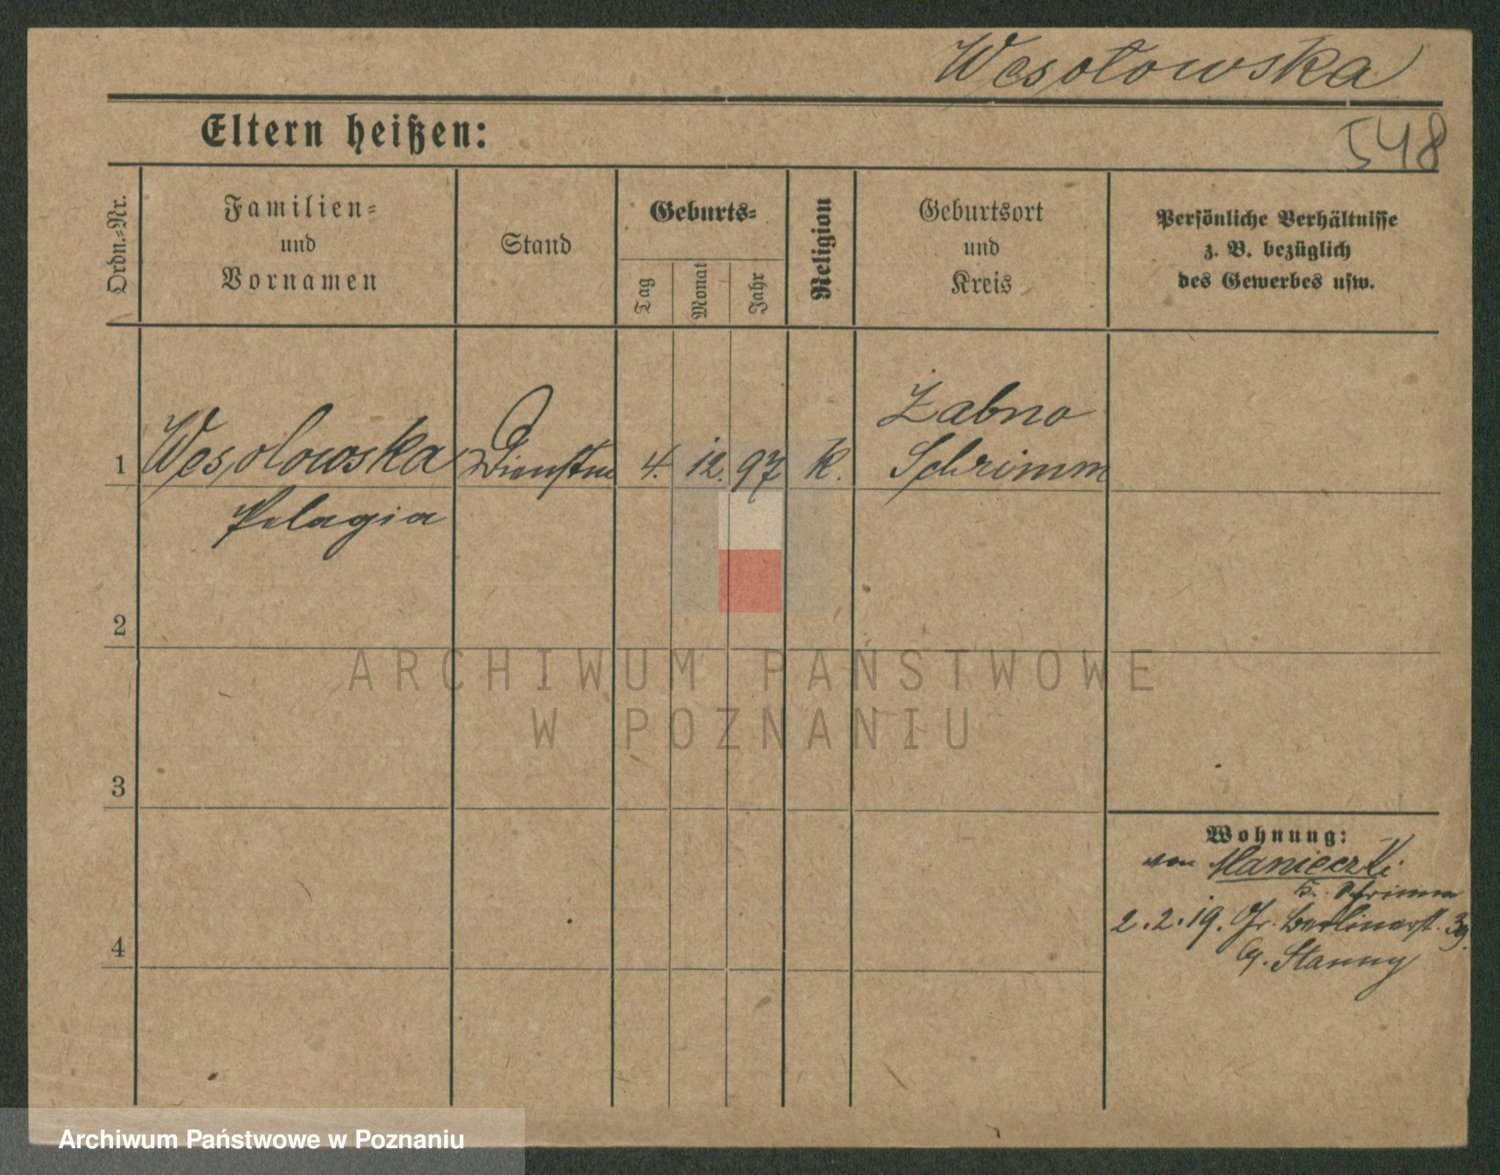 Wesołowska
Eltern heißen:
548
Ordn.-Nr.
Familien-
und
Vornamen
Stand
Geburts-
Tag
Monat
Jahr
Religion
Geburtsort
und
Kreis
Persönliche Verhältnisse
z. B. bezüglich
des Gewerbes usw.
1 Wesolowska Dienstm 4. 12. 97 K. Żabno
Schrimm
Pelagia
2
ARCHIWUM PAŃSTWOWE
W POZNANIU
3
Wohnung:
von Manieczki
Schrimm
2.2.19. Gr. Berlinerst. 39.
Stanny
4
Archiwum Państwowe w Poznaniu